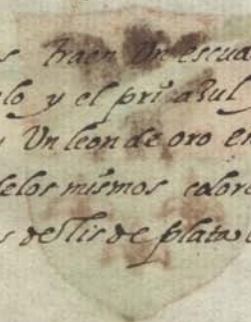 s traen Un escud
elo y el prio azul
y Un leon de oro en
delos mismos colore
s de lis de plata